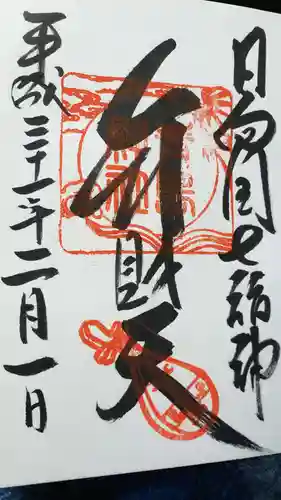 日向国七福神
弁財天
平成三十一年二月一日